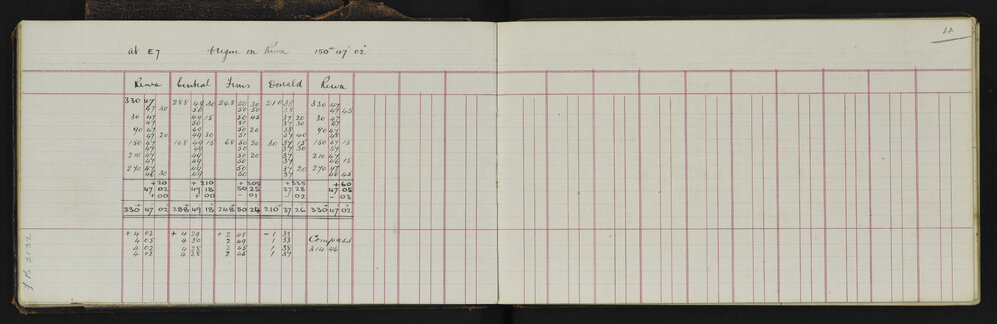 4
at E7 begin on Rewa 150° 47' 02"
Rewa Central Firms Donald Rewa
330 47 288 49 30 248 50 30 210 38 330 47
47 30 50 50 50 38 47 45
30 47 49 15 50 45 37 20 30 47
47 50 51 37 30 47
90 47 49 50 20 38 90 47
47 20 49 30 51 37 40 48
150 47 108 49 15 68 50 20 30 37 15 150 47 15
47 49 50 37 30 47
210 47 49 50 20 37 210 47
47 49 50 37 46 15
270 47 49 50 37 20 270 47
46 30 49 50 37 46 45
+20 +210 +305 +335 +60
47 02 49 18 50 25 37 28 47 05
+00 +00 - 01 - 02 - 03
330° 47' 02" 288° 49' 18" 248° 50' 24" 210° 37' 26" 330° 47' 02"
+ 4 02 + 4 29 + 2 48 - 1 31
4 05 4 30 2 49 1 33 Compass
4 02 4 28 2 45 1 38 314 46
4 02 4 28 2 45 1 37
F B 2132